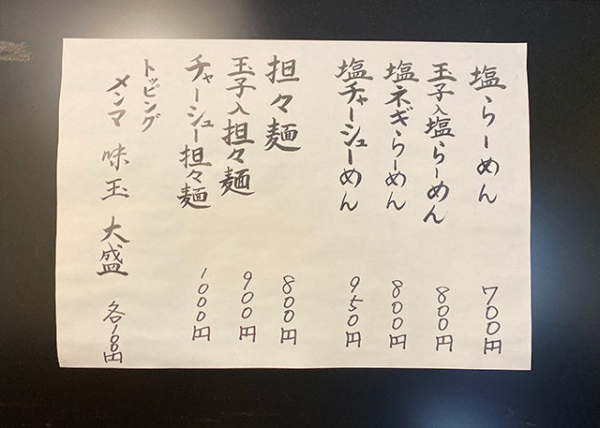 塩らーめん 700円
玉子入塩らーめん 800円
塩ネギらーめん 800円
塩チャーシューめん 950円
担々麺 800円
玉子入担々麺 900円
チャーシュー担々麺 1000円
トッピング
メンマ 味玉 大盛 各100円